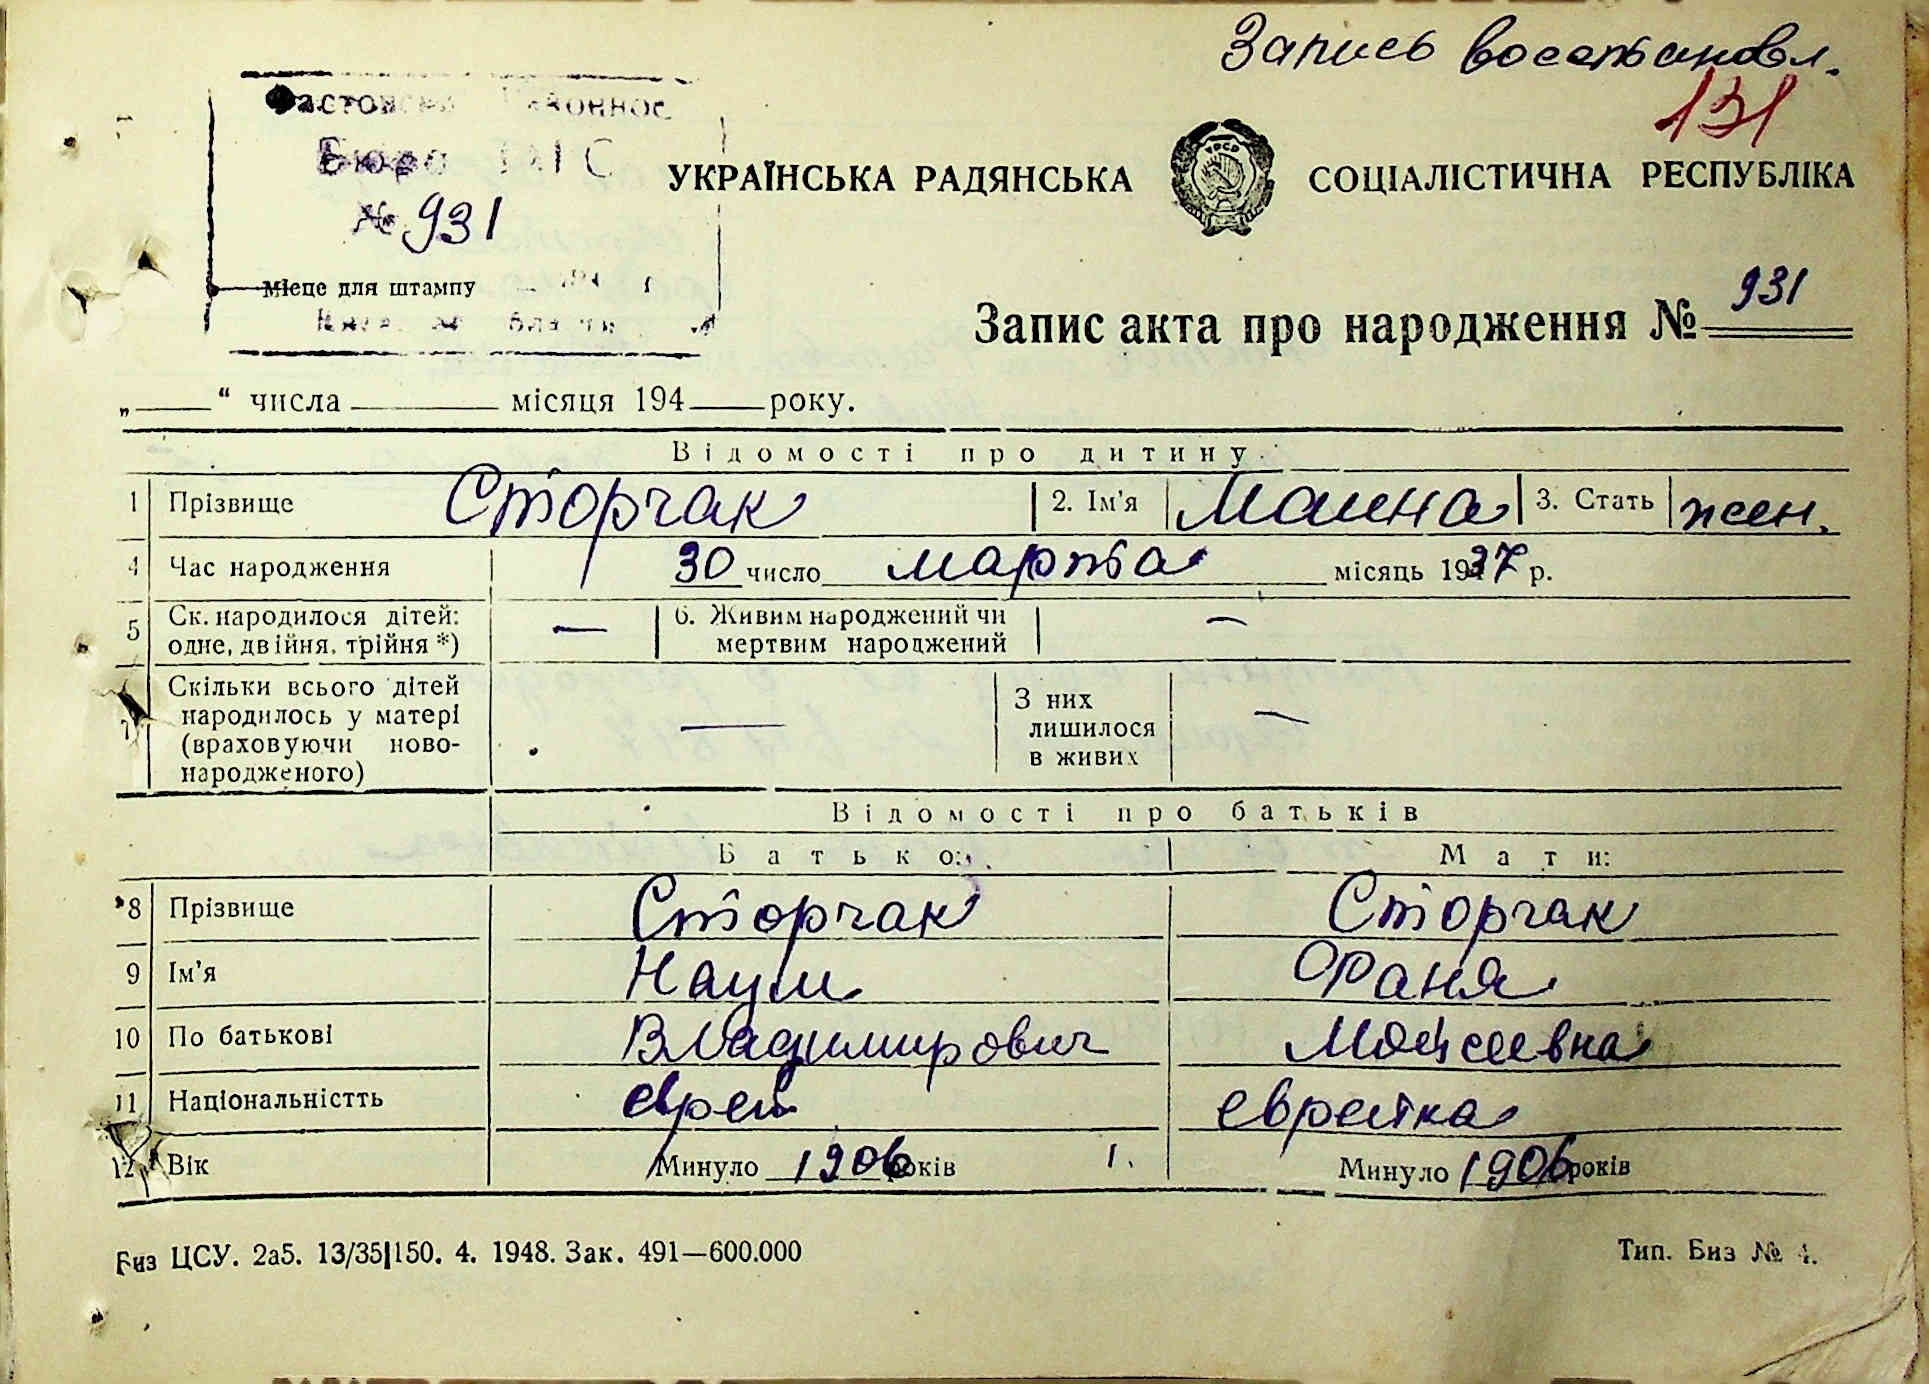 Запись восстановл.
131
Бюро ЗАГС
№ 931
Місце для штампу
УКРАЇНСЬКА РАДЯНСЬКА СОЦІАЛІСТИЧНА РЕСПУБЛІКА
Запис акта про народження № 931
„ “ числа місяця 194 року.
Відомості про дитину
1 Прізвище Сторчак 2. Ім'я Маина 3. Стать жен.
4 Час народження 30 число марта місяць 1937 р.
5 Ск. народилося дітей: — 6. Живим народжений чи —
одне, двійня, трійня *) мертвим народжений
7 Скільки всього дітей З них
народилось у матері — лишилося —
(враховуючи ново- в живих
народженого)
Відомості про батьків
Батько: Мати:
8 Прізвище Сторчак Сторчак
9 Ім'я Наум Фаня
10 По батькові Владимирович Моисеевна
11 Національністть еврей еврейка
12 Вік Минуло 1906 років Минуло 1906 років
Биз ЦСУ. 2а5. 13/35|150. 4. 1948. Зак. 491—600.000 Тип. Биз № 4.